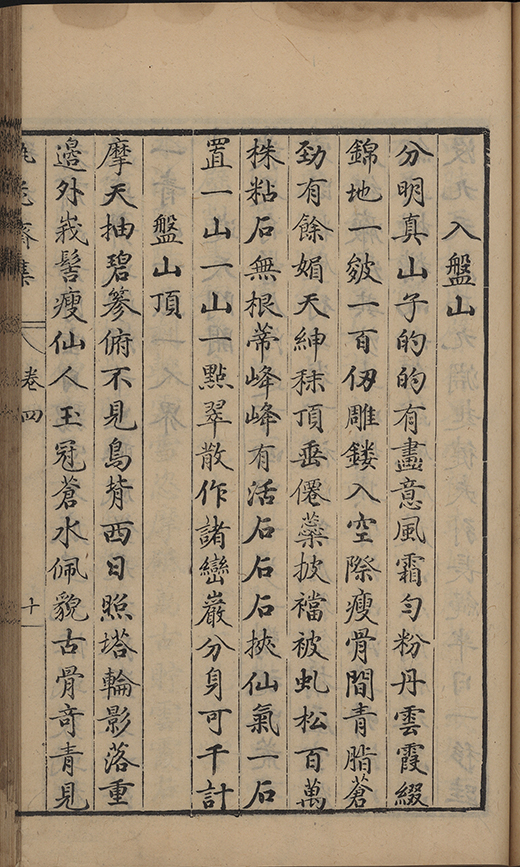 入盤山
分明真山子的的有畫意風霜勻粉丹雲霞綴
錦地一皴一百仞雕鏤入空際瘦骨間青脂蒼
勁有餘媚天紳秣頂垂僊藥披襠被虬松百萬
株粘石無根蒂峰峰有活石石石挾仙氣一石
置一山一山一點翠散作諸巒巖分身可千計
盤山頂
摩天抽碧篸俯不見鳥背西日照塔輪影落重
邉外峩髻瘦仙人玉冠蒼水佩貌古骨奇青見
集
卷四
十